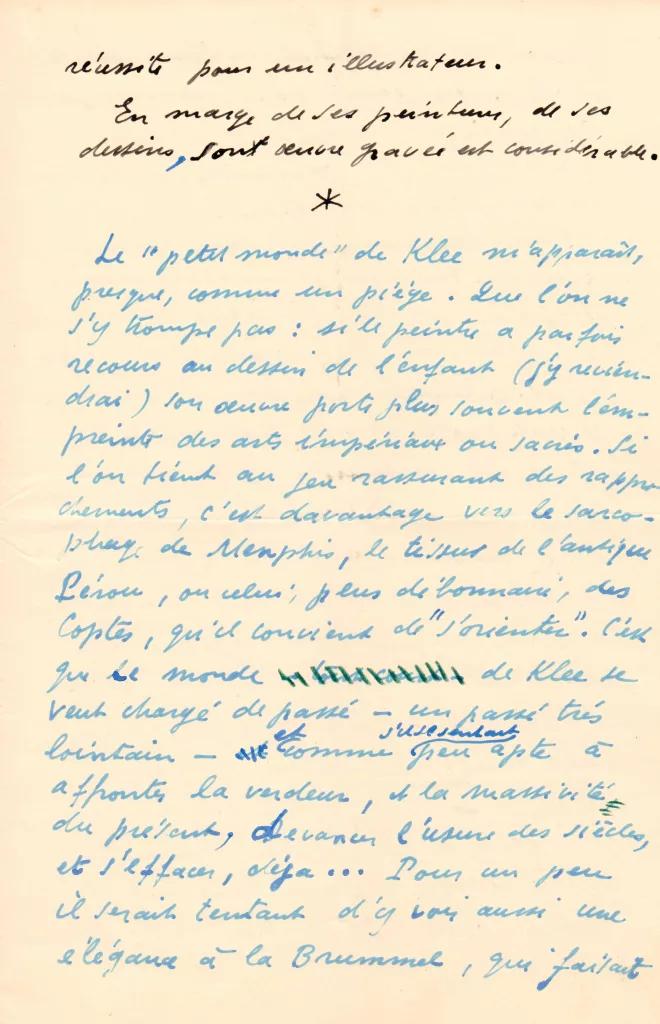 réussite pour un illustrateur.
En marge de ses peintures, de ses
dessins, son œuvre gravée est considérable.
*
Le "petit monde" de Klee m'apparaît,
presque, comme un piège. Que l'on ne
s'y trompe pas : si le peintre a parfois
recours au dessin de l'enfant (j'y revien-
drai) son œuvre porte plus souvent l'em-
preinte des arts impériaux ou sacrés. Si
l'on tient au jeu rassurant des rappro-
chements, c'est davantage vers le sarco-
phage de Memphis, le tissus de l'antique
Pérou, ou celui, plus débonnaire, des
Coptes, qu'il convient de "s'orienter". C'est
que le monde de Klee se
veut chargé de passé — un passé très
lointain — et comme s'il se sentait peu apte à
affronter la verdeur, et la massivité
du présent, devancer l'usure des siècles,
et s'effacer, déjà... Pour un peu
il serait tentant d'y voir aussi une
élégance à la Brummel, qui faisait